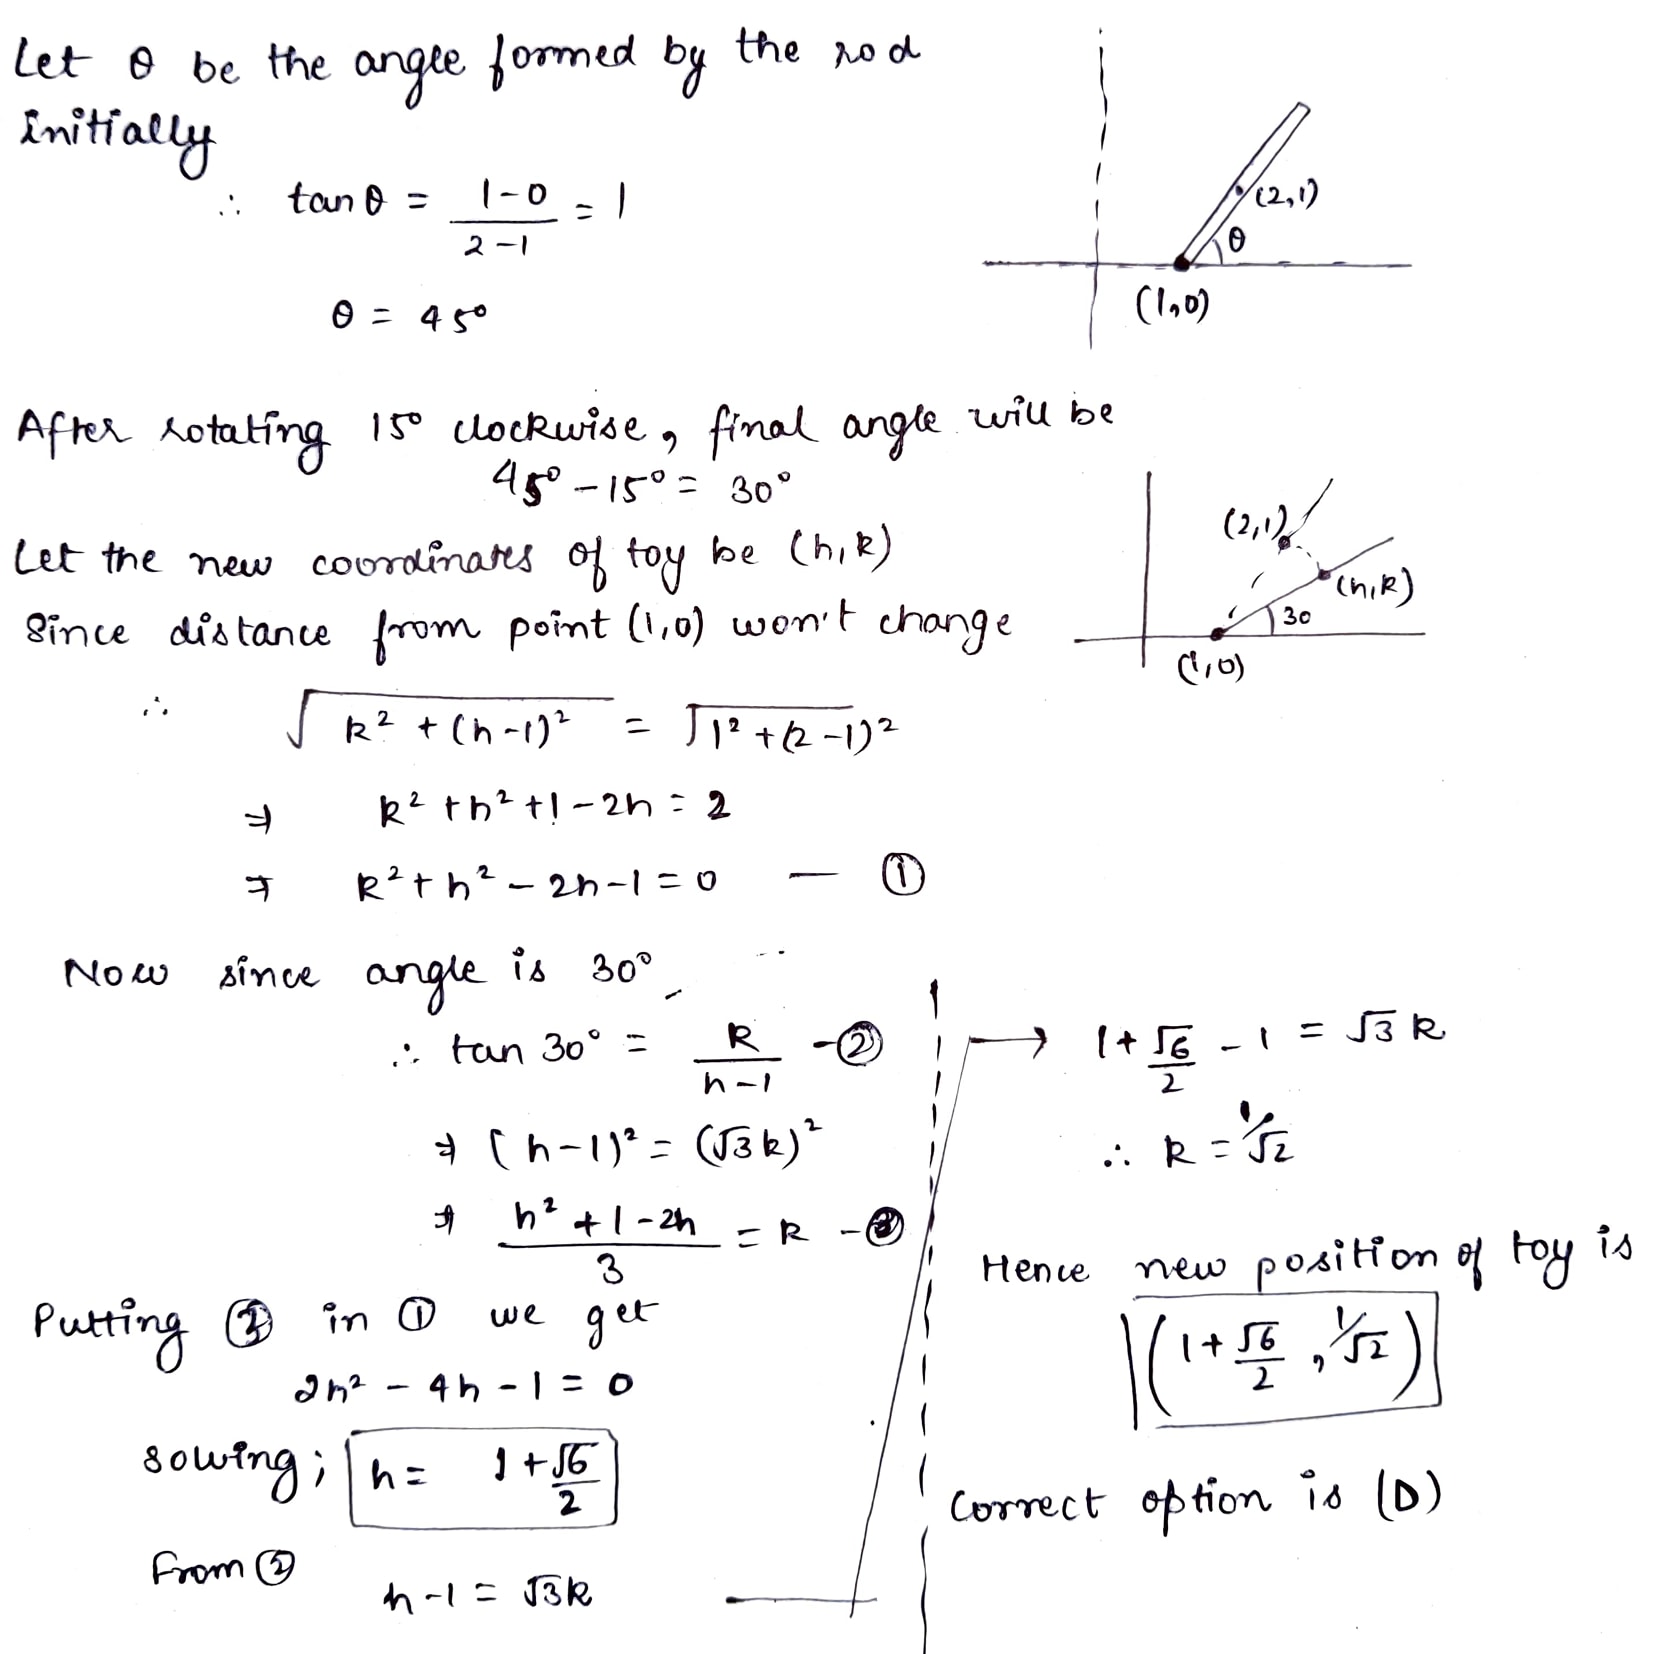 Let θ be the angle formed by the rod
initially
∴ tan θ = (1-0)/(2-1) = 1
θ = 45°
(2,1)
θ
(1,0)
After rotating 15° clockwise, final angle will be
45° - 15° = 30°
Let the new coordinates of toy be (h,k)
Since distance from point (1,0) won't change
(2,1)
(h,k)
30
(1,0)
∴ √(k² + (h-1)²) = √(1² + (2-1)²)
⇒ k² + h² + 1 - 2h = 2
⇒ k² + h² - 2h - 1 = 0 — ①
Now since angle is 30°
∴ tan 30° = k/(h-1) - ②
⇒ (h-1)² = (√3k)²
⇒ (h² + 1 - 2h)/3 = k - ③
Putting ③ in ① we get
2h² - 4h - 1 = 0
solving; h = 1 + √6/2
From ②
h - 1 = √3k
→ 1 + √6/2 - 1 = √3 k
∴ k = 1/√2
Hence new position of toy is
(1 + √6/2, 1/√2)
Correct option is (D)